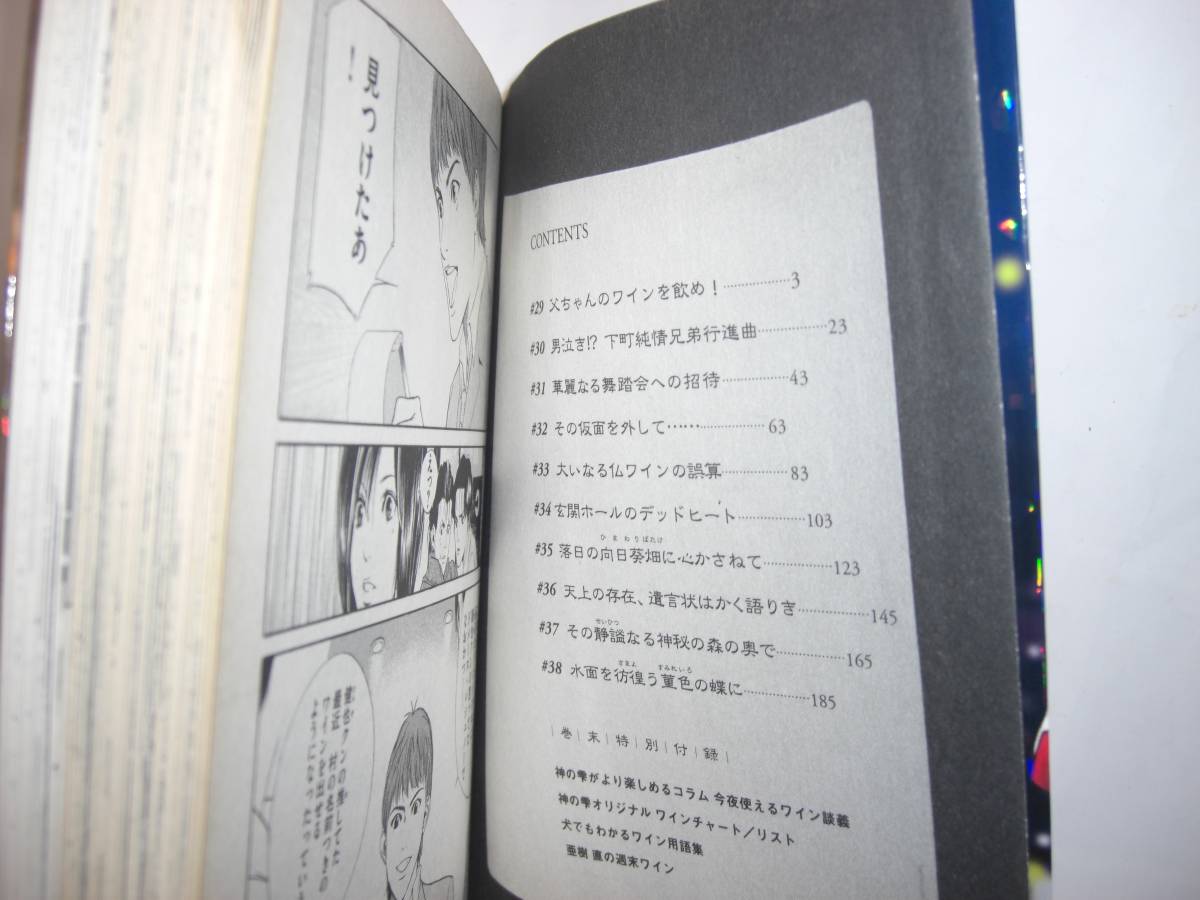 見つけたあ
！
えっ？
CONTENTS
#29 父ちゃんのワインを飲め！………………3
#30 男泣き!? 下町純情兄弟行進曲………………23
#31 華麗なる舞踏会への招待………………43
#32 その仮面を外して……………………63
#33 大いなる仏ワインの誤算………………83
#34 玄関ホールのデッドヒート………………103
ひまわりばたけ
#35 落日の向日葵畑に心かさねて………………123
#36 天上の存在、遺言状はかく語りき………………145
せいひつ
#37 その静謐なる神秘の森の奥で………………165
さまよ すみれいろ
#38 水面を彷徨う菫色の蝶に………………185
|巻|末|特|別|付|録|
神の雫がより楽しめるコラム 今夜使えるワイン談義
神の雫オリジナル ワインチャート／リスト
犬でもわかるワイン用語集
亜樹 直の週末ワイン